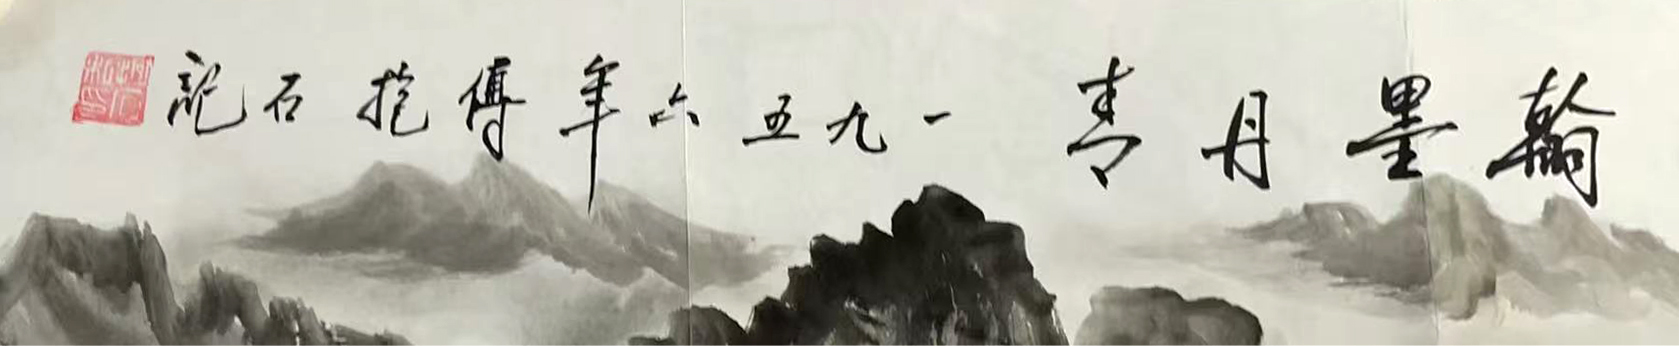 翰墨丹青 一九五六年傅抱石记